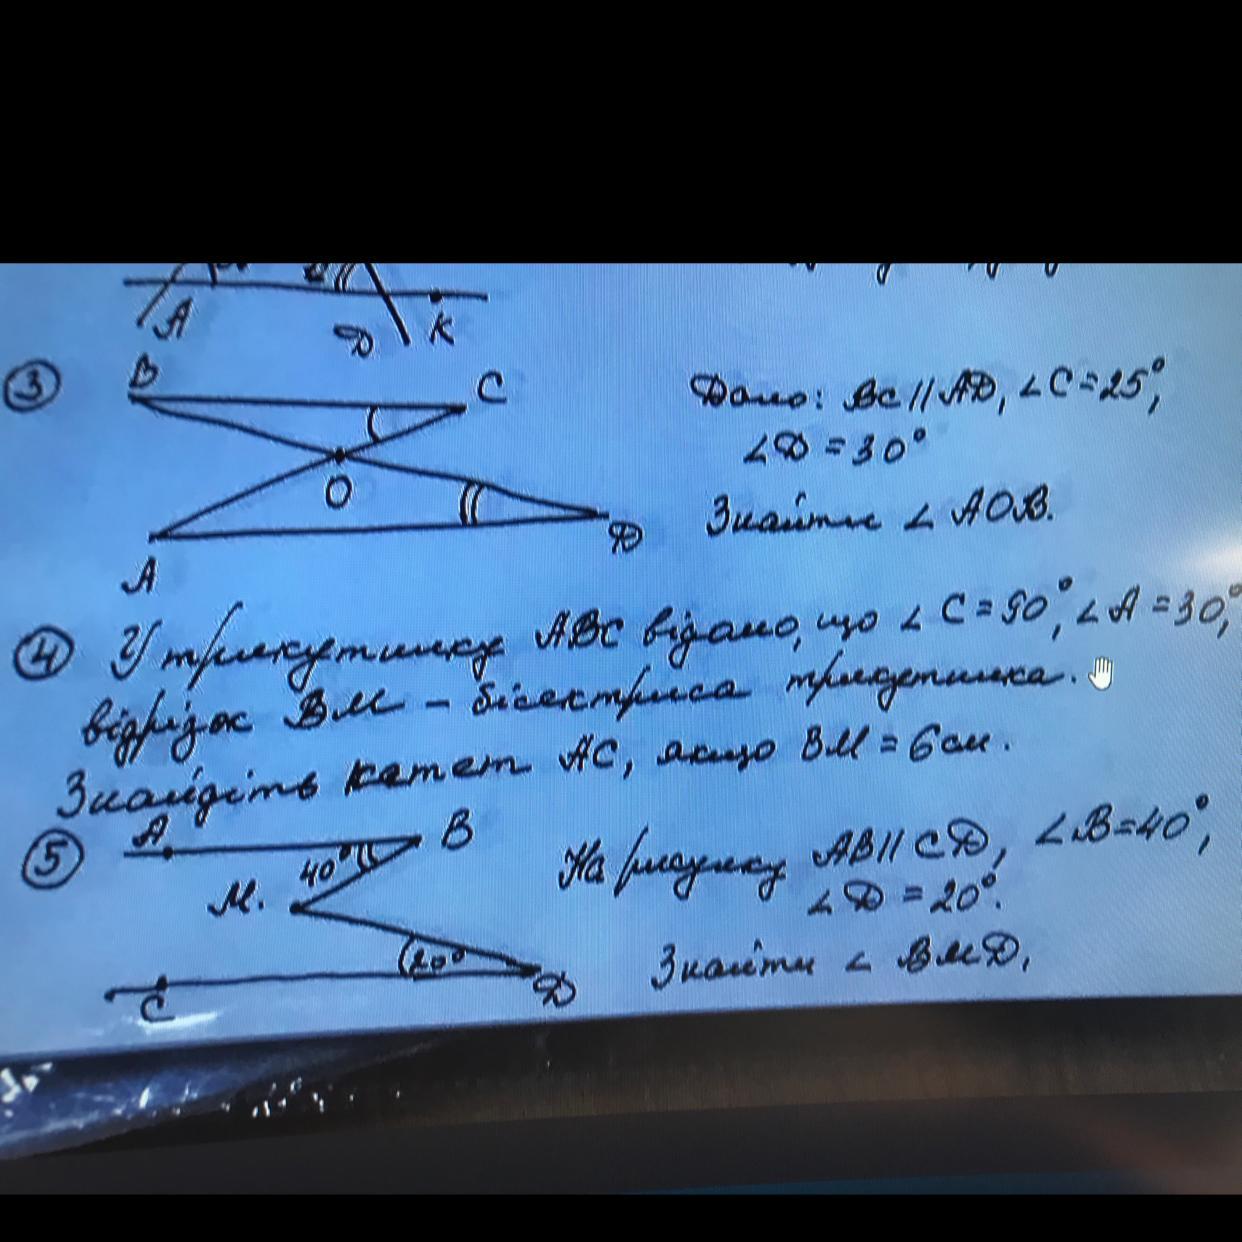 A
D
K
3
B
C
O
A
D
Дано: BC // AD, ∠C=25°,
∠D =30°
Знайти ∠ AOB.
4 У трикутнику ABC відомо, що ∠ C=90°, ∠ A =30°,
відрізок BM – бісектриса трикутника.
Знайдіть катет AC, якщо BM = 6 см.
5
A
B
40°
M.
20°
C
D
На рисунку AB // CD, ∠B=40°,
∠ D =20°.
Знайти ∠ BMD,